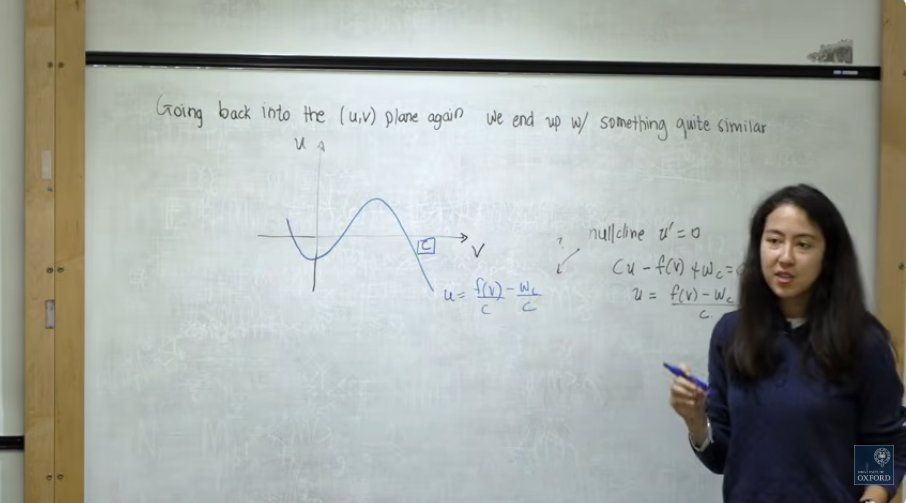 Going back into the (u,v) plane again we end up w/ something quite similar
u
v
C
u = f(v)/c - wc/c
nullcline u' = 0
Cu - f(v) + wc =
u = f(v) - wc / c
UNIVERSITY OF
OXFORD